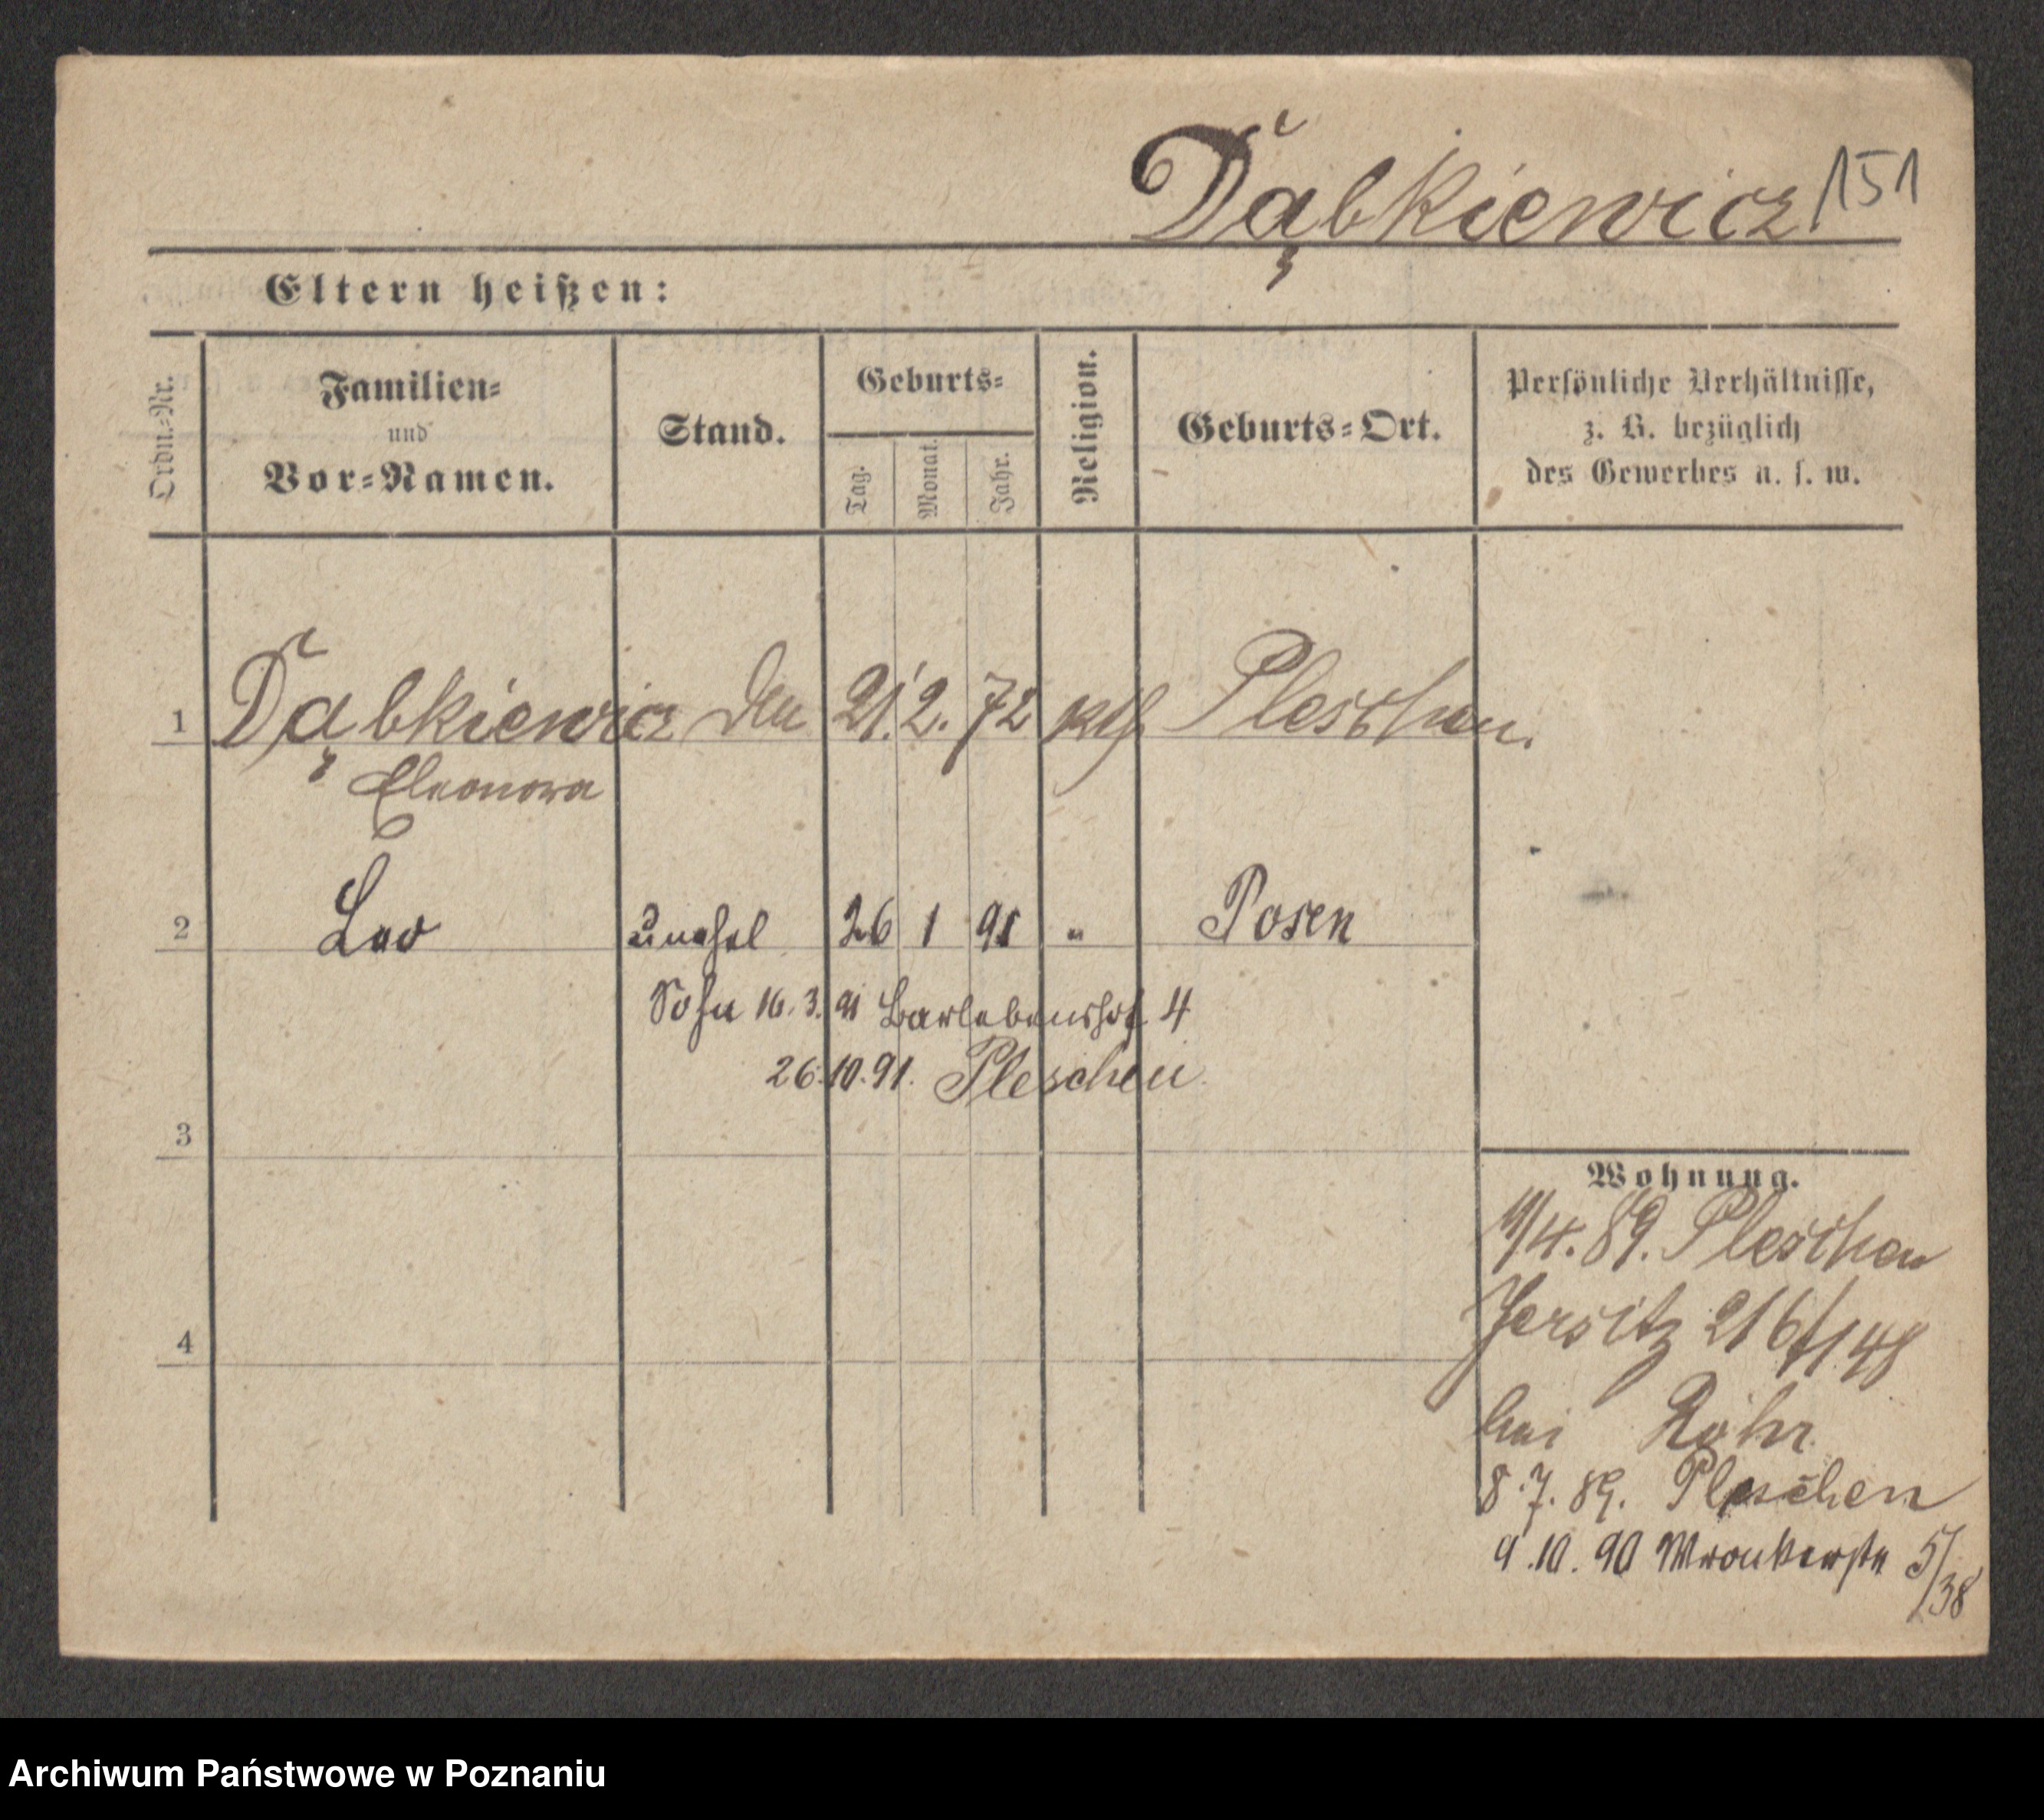 Dąbkiewicz 151
Eltern heißen:
Ordn.-Nr.
Familien-
und
Vor-Namen.
Stand.
Geburts-
Tag.
Monat.
Jahr.
Religion.
Geburts-Ort.
Persönliche Verhältnisse,
z. B. bezüglich
des Gewerbes u. s. w.
1 Dąbkiewicz 21. 2. 72 kth Pleschen.
Eleonora
2 Leo unehel 26 1 91 " Posen
Sohn 16. 3. 91 Barlebenshof 4
26. 10. 91. Pleschen
3
Wohnung.
4. 89. Pleschen
4
Jersitz 216/148
bei Röhr
8. 7. 89. Pleschen
9. 10. 90 Wronkerstr 5/38
Archiwum Państwowe w Poznaniu